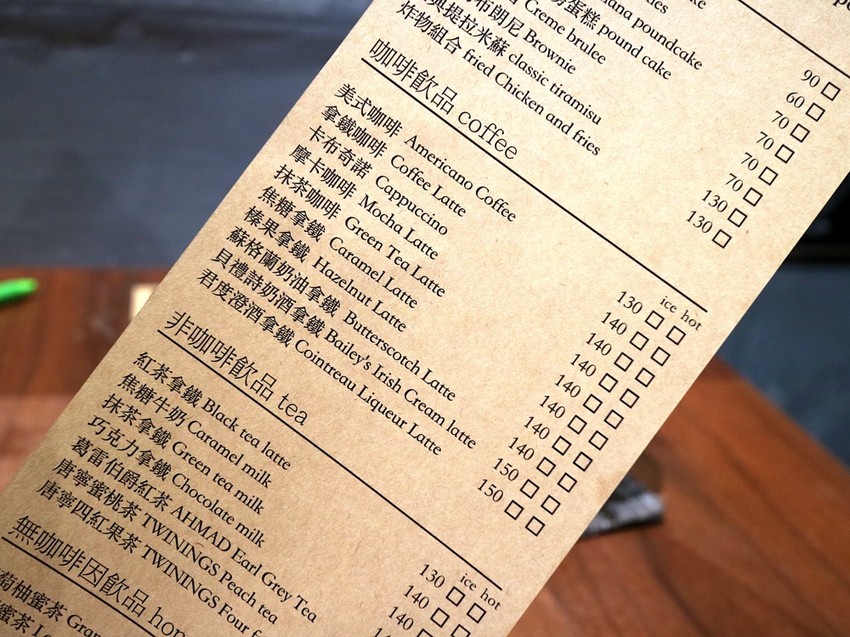 poundcake
蛋糕 pound cake 90
Creme brulee 60
布朗尼 Brownie 70
典提拉米蘇 classic tiramisu 70
炸物組合 fried Chicken and fries 130
130
咖啡飲品 coffee
ice hot
美式咖啡 Americano Coffee 130
拿鐵咖啡 Coffee Latte 140
卡布奇諾 Cappuccino 140
摩卡咖啡 Mocha Latte 140
抹茶咖啡 Green Tea Latte 140
焦糖拿鐵 Caramel Latte 140
榛果拿鐵 Hazelnut Latte 140
蘇格蘭奶油拿鐵 Butterscotch Latte 140
貝禮詩奶酒拿鐵 Bailey's Irish Cream latte 150
君度澄酒拿鐵 Cointreau Liqueur Latte 150
非咖啡飲品 tea
ice hot
紅茶拿鐵 Black tea latte 130
焦糖牛奶 Caramel milk 140
抹茶拿鐵 Green tea milk 140
巧克力拿鐵 Chocolate milk
葛雷伯爵紅茶 AHMAD Earl Grey Tea
唐寧蜜桃茶 TWININGS Peach tea
唐寧四紅果茶 TWININGS Four
無咖啡因飲品
柚蜜茶
蜜茶